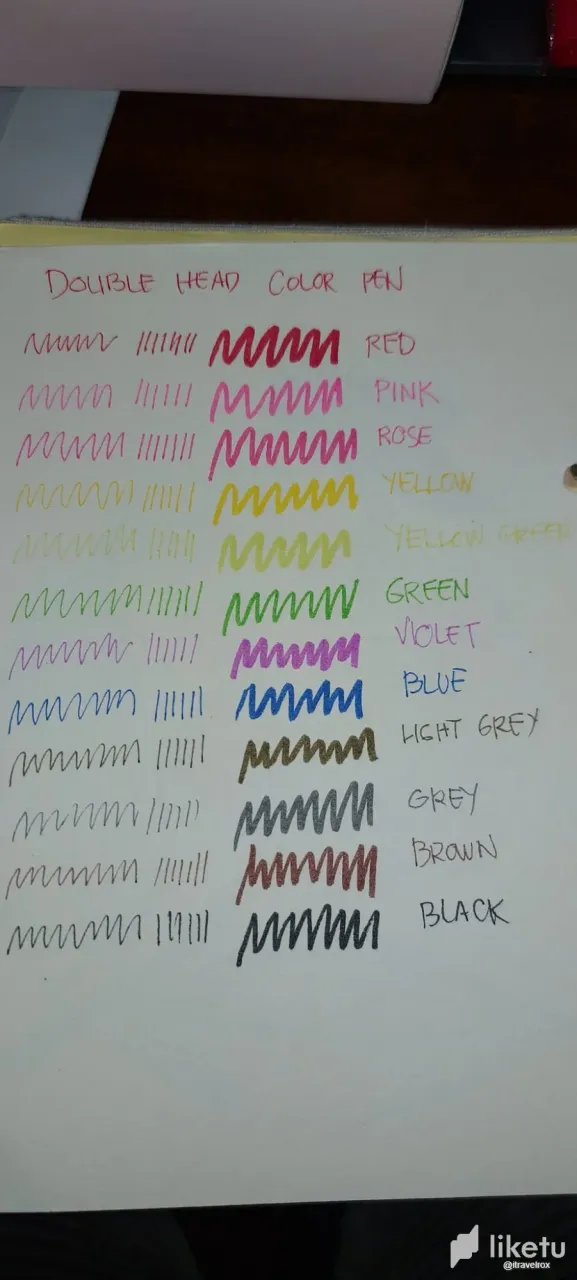 DOUBLE HEAD COLOR PEN
RED
PINK
ROSE
YELLOW
YELLOW GREEN
GREEN
VIOLET
BLUE
LIGHT GREY
GREY
BROWN
BLACK
liketu
@itravelrox